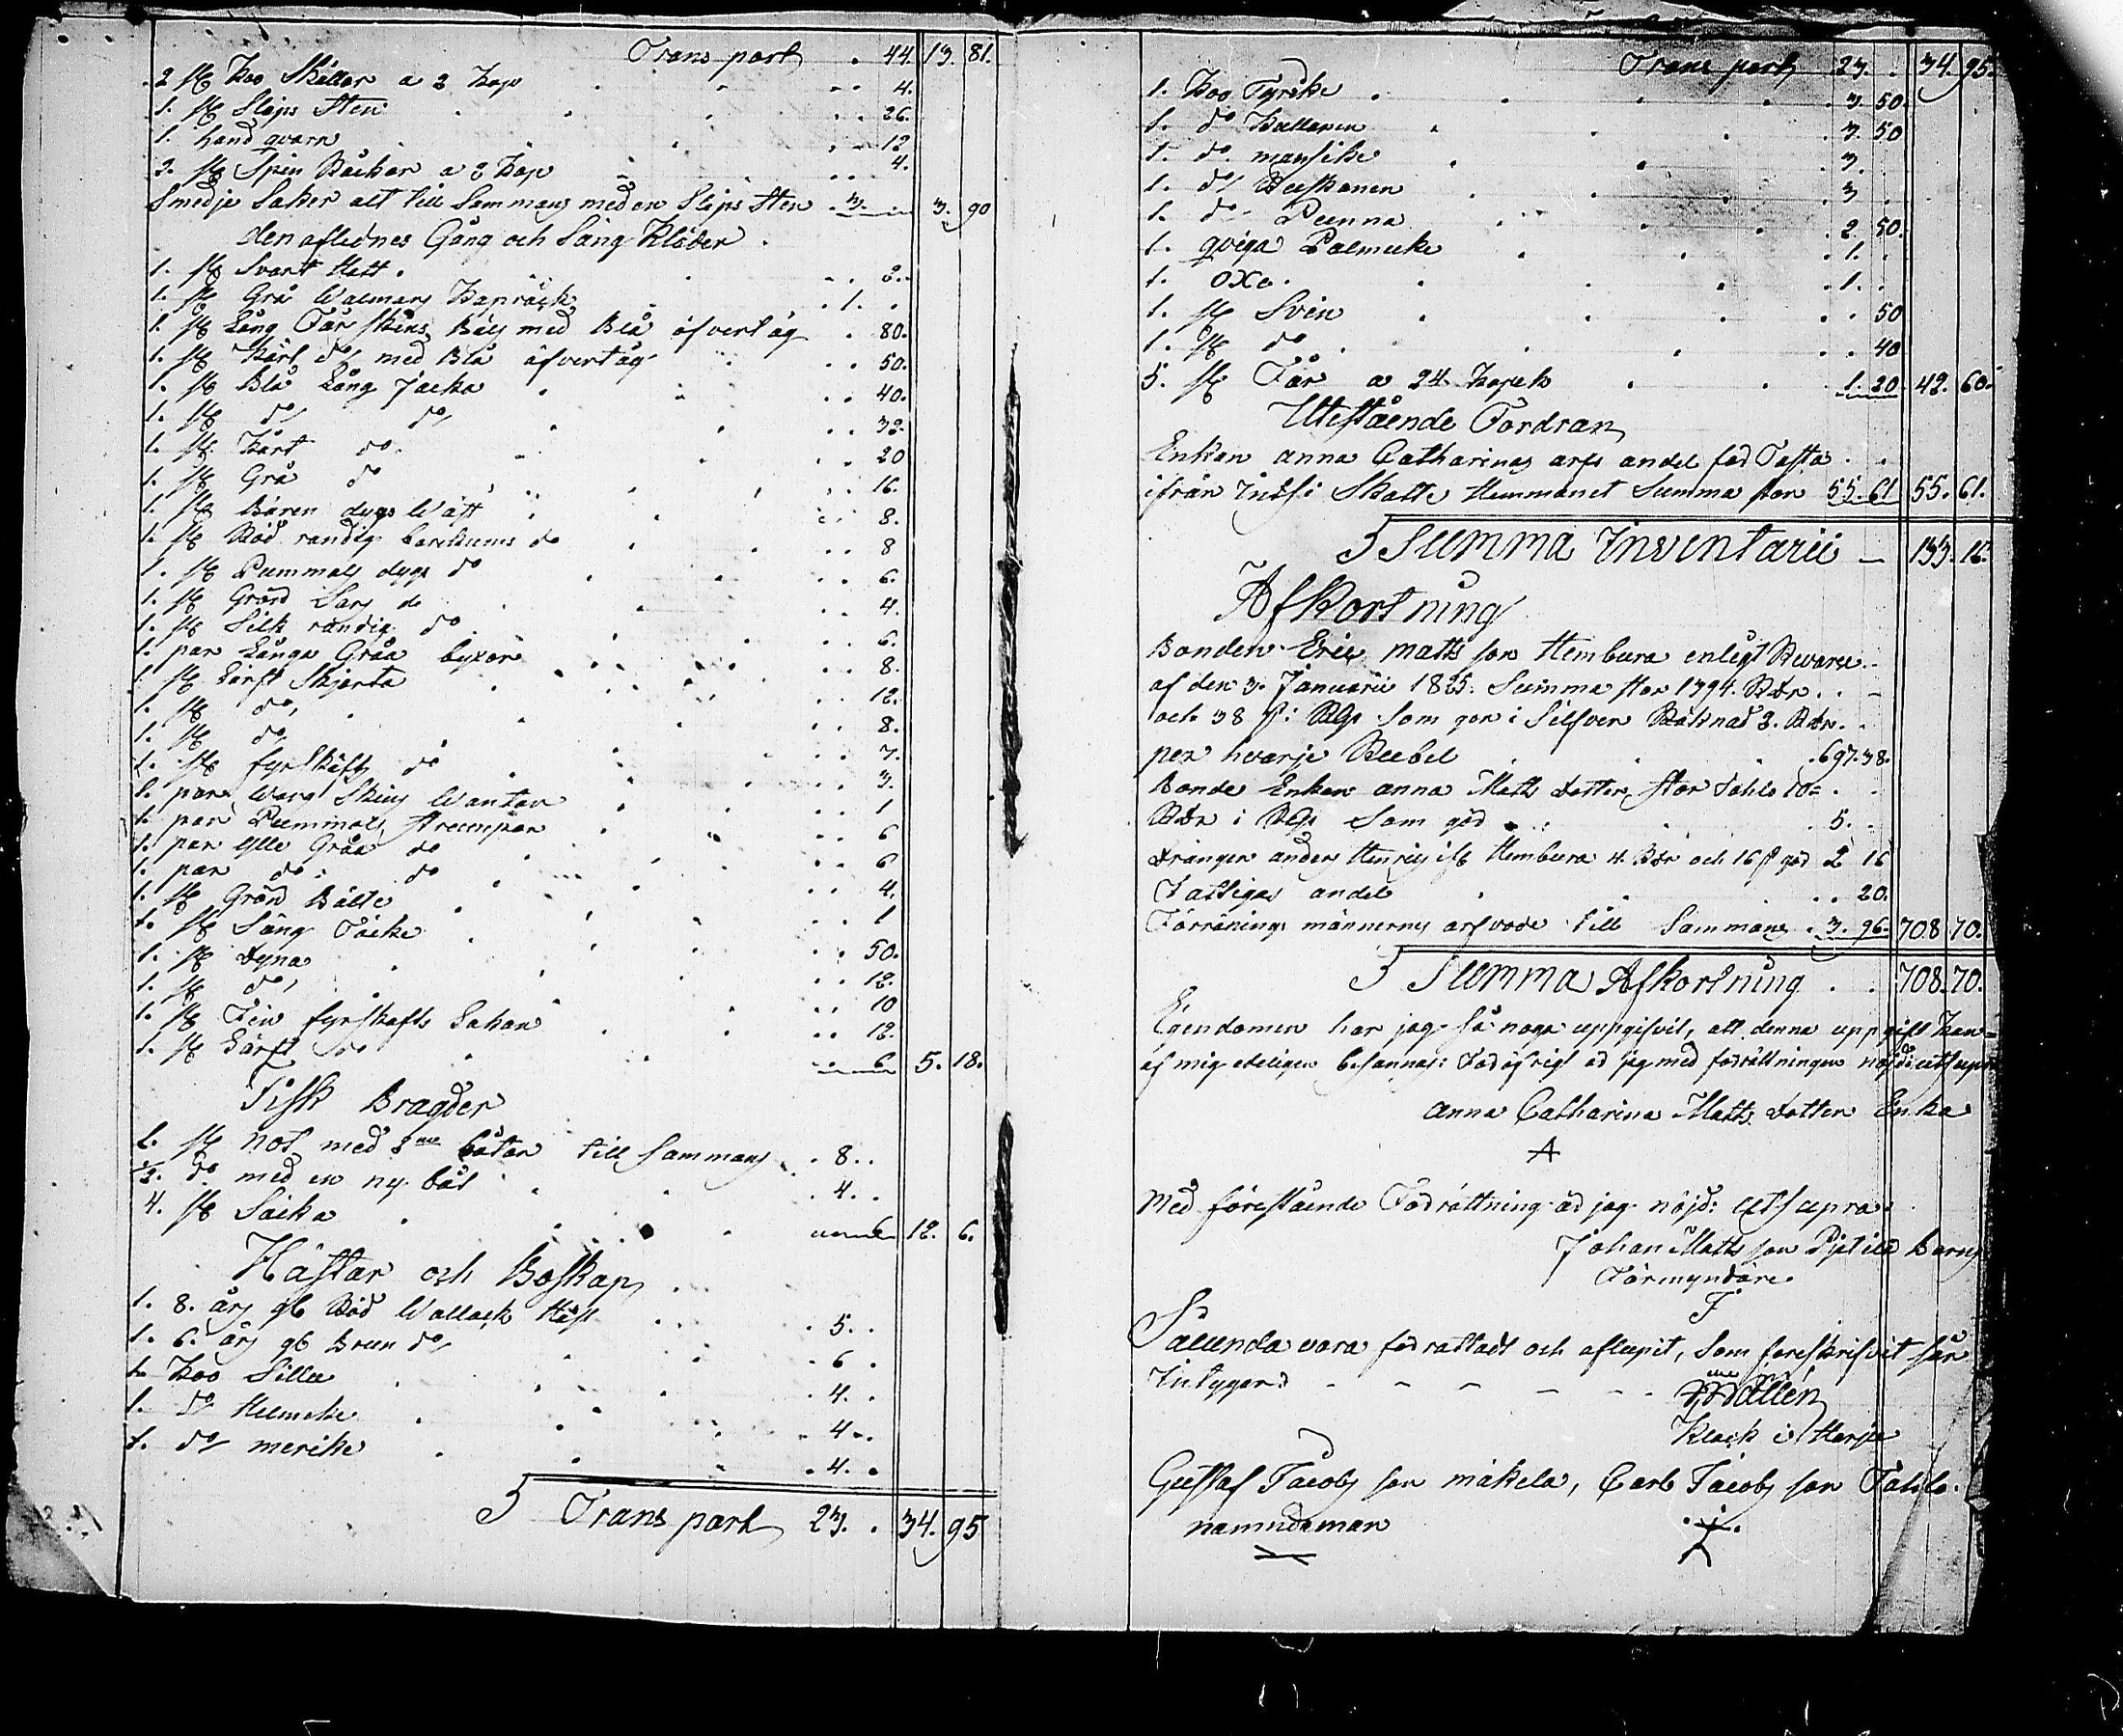 Trans port . 44. 13. 81.
2 st Koo Skällor a 2 kop 4.
1. st Slips Sten 26.
1. hand qvarn 12
2. st Spin Råckar a 2 kop 4.
Smedje Saker alt till Sammans med en Slips Sten . 3. 3. 90
den aflednes Gång och Säng Kläder
1. st Svart Hatt . 2.
1. st Grå Walmars Kapråck . 1. .
1. st Lång Får skins Päls med Blå öfvertåg . 80.
1. st Kårt do med Blå öfvertåg . 50.
1. st Blå Lång Jacka . 40.
1. st do do 32.
1. st Kårt do 20
1. st Grå do 16.
1. st dygs Wäst 8.
1. st Röd randig do 8
1. st Pummols dygs do 6.
1. st Grönd Sars do 4.
1. st Silk randig do 6.
1. par Långa Gråa byxor 8.
1 st Lärft Skjorta 12.
1. st do 8.
1. st do 7.
1. st fyrskäfts do 3.
1. par Skins Wantar 1
1. par Pummols strumpor 6
1. par ylle Gråa do 6
1. par do do 4.
1. st Grönd Bälte 1
1. st Säng Täcke 50.
1. st Dyna 12.
1. st do 10
1. st Fin fyrskafts Lakan 12.
1. st Lärft do 6 5. 18.
Fisk Bragder
1. st not med 2ne båtar till sammans . 8. .
1/2. do med en ny båt . 4. .
4. st Säcka 6 12. 6.
Hästar och Boskap
1. 8. års gl Röd Wallack Häst . 5. .
1. 6. års gl Brun do . 6 .
1. Koo Lilla . 4. .
1. do Humeke . 4. .
1. do merike . 4. .
Trans port 23. . 34. 95
Trans port 23. . 34. 95.
1. Koo Tyrike . 3. 50.
1. do Kullanen . 3. 50
1. do mansike . 3. .
1. do Ruskanen . 3 .
1. do Punna . 2 50.
1. qviga Palmicke . 1. .
1. oxe . 1. .
1. st Svin . . 50
1. st do . . 40
5. st Får a 24. Kopek . 1. 20 42. 60.
Utestående Fordran
Enkan anna Catharinas arfs andel
ifrån Skatte Hemmanet Summa stor 55. 61 55. 61.
Summa Inventarii — 133. 16.
Afkortning
Bonden Eric Matts son Hembura enligt Revers
af den 3. Januarii 1825. Summa stor 1394. Rbr. . –
och 38 i RGs som gör i Silfver Räknad 2. Rbr. .
per hvarje Rubel . 697. 38.
Bonde Enkan anna Matts dotter stor Tahlo 10 = . .
Rbr i RGs Som gör . 5. .
Drängen anders Henrics Hembura 4. Rbr och 16 gör 2 16
Fattigas andel . . 20.
Förrätnings männernes arfvode till Sammans . 3. 96. 708 70.
Summa Afkortning . . 708. 70.
Egendomen har jag så noga uppgifvit, att denna uppgift kan =
af mig edeligen besannas: är jag med förrättningen nöjd: utsupra
Anna Catharina Matts dotter Enka
A
Med förestående Förrättning är jag nöjd: utsupra.
Johan Matts son Barns
Förmyndare.
F
Sålunda vara förrattadt och aflupit, som föreskrifvit
Intygar. – – – – – – Wallén
Klock i Harju
Gustaf Jacobs son mäkelä, Carl Jacobs son Tahlo.
nämndeman